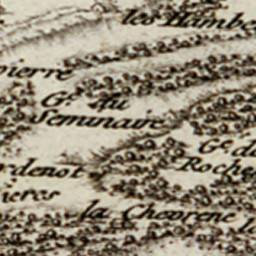 les Hambe
pierre
G.e du
Seminaire
G.e du
Roche
denot
ieres
la Chevrene le